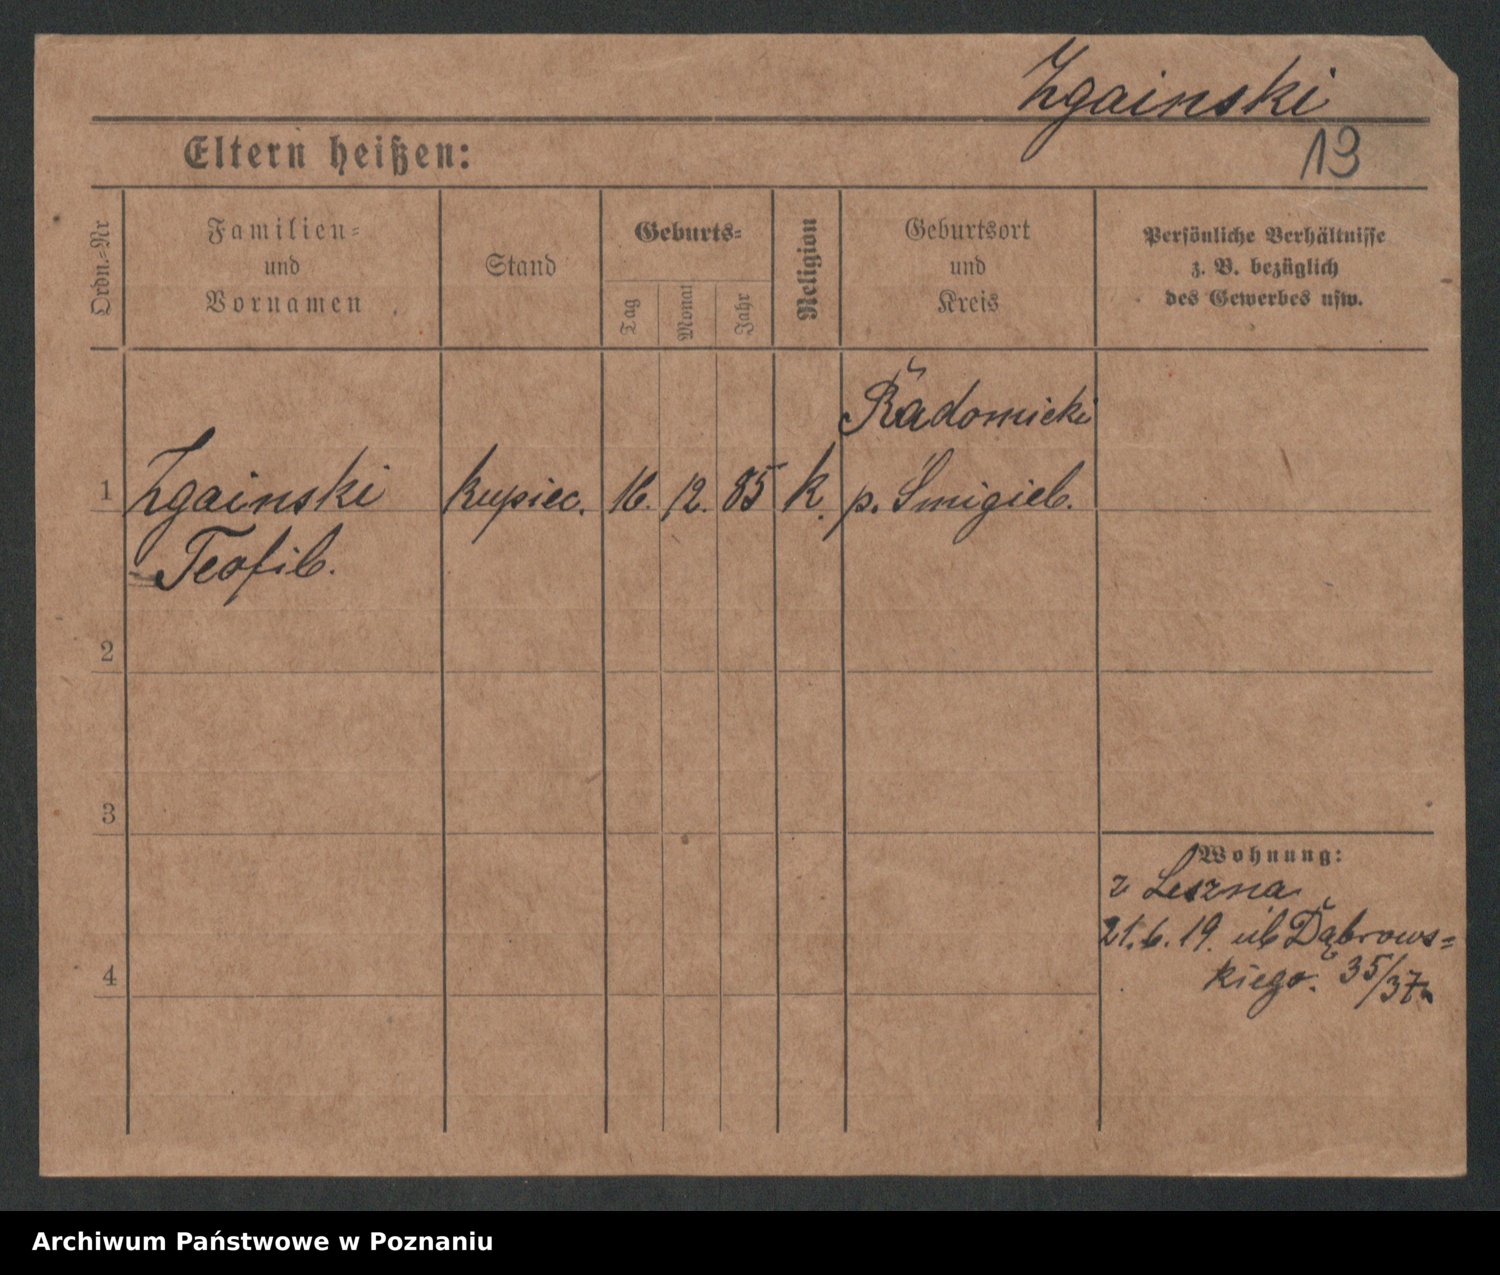 Zgainski
13
Eltern heißen:
Ordn.-Nr
Familien-
und
Vornamen
Stand
Geburts-
Tag
Monat
Jahr
Religion
Geburtsort
und
Kreis
Persönliche Verhältnisse
z. B. bezüglich
des Gewerbes usw.
Radomicki
1 Zgainski kupiec. 16. 12. 85 k. p. Śmigiel.
Teofil.
2
3
Wohnung:
z Leszna
21.6.19. ul Dąbrows=
kiego. 35/37
4
Archiwum Państwowe w Poznaniu